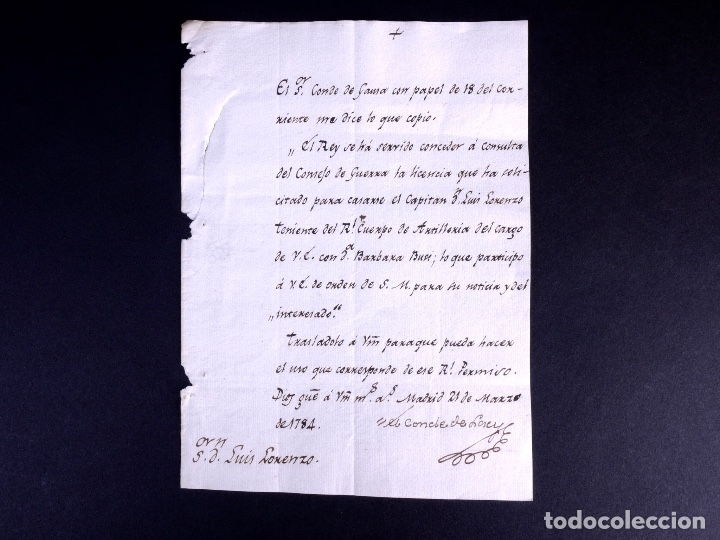 +
El S.ᵒʳ Conde de Gausa con papel de 18 del cor-
riente me dice lo que copio.
„ El Rey se há servido conceder á consulta
del Consejo de Guerra la licencia que ha soli-
citado para casarse el Capitan D.ⁿ Luis Lorenzo
teniente del R.ˡ Cuerpo de Artilleria del cargo
de V.E. con D.ᵃ Barbara Busi; lo que participo
á V.E. de orden de S. M. para su noticia y del
„interesado.“
Trasladolo á Vm̃ paraque pueda hacer
el uso que corresponde de ese R.ˡ Permiso.
Dios gũe á Vm̃ m.ˢ a.ˢ Madrid 21 de Marzo
de 1784.
el Conde de Lacy
S.ᵒʳ D.ⁿ Luis Lorenzo.
todocoleccion
todocoleccion.net